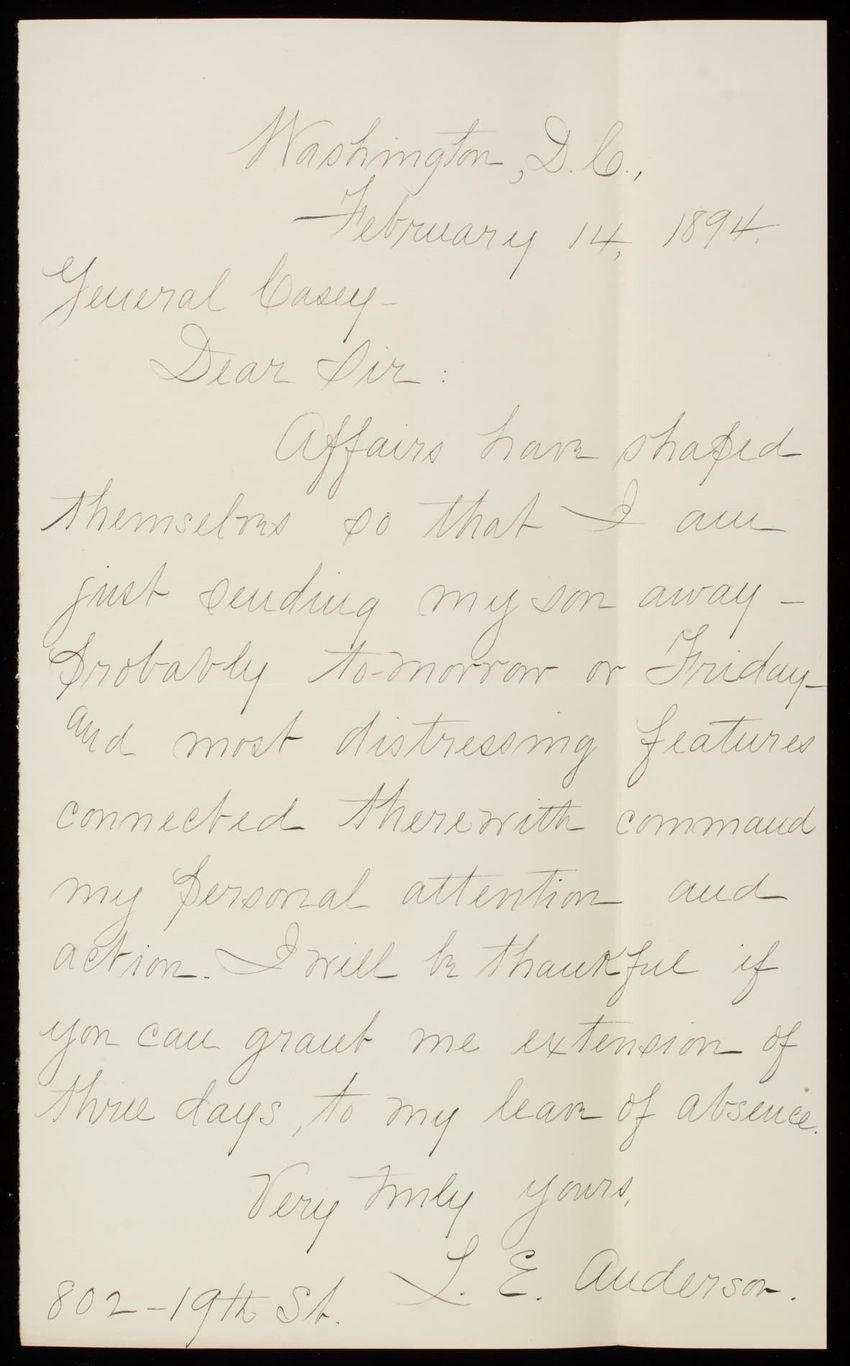 Washington, D.C.,
February 14, 1894.
General Casey-
Dear Sir:
Affairs have shaped
themselves so that I am
just sending my son away -
probably to-morrow or Friday-
and most distressing features
connected therewith command
my personal attention and
action. I will be thankful if
you can grant me extension of
three days, to my leave of absence.
Very truly yours,
L. E. Anderson.
802-19th St.